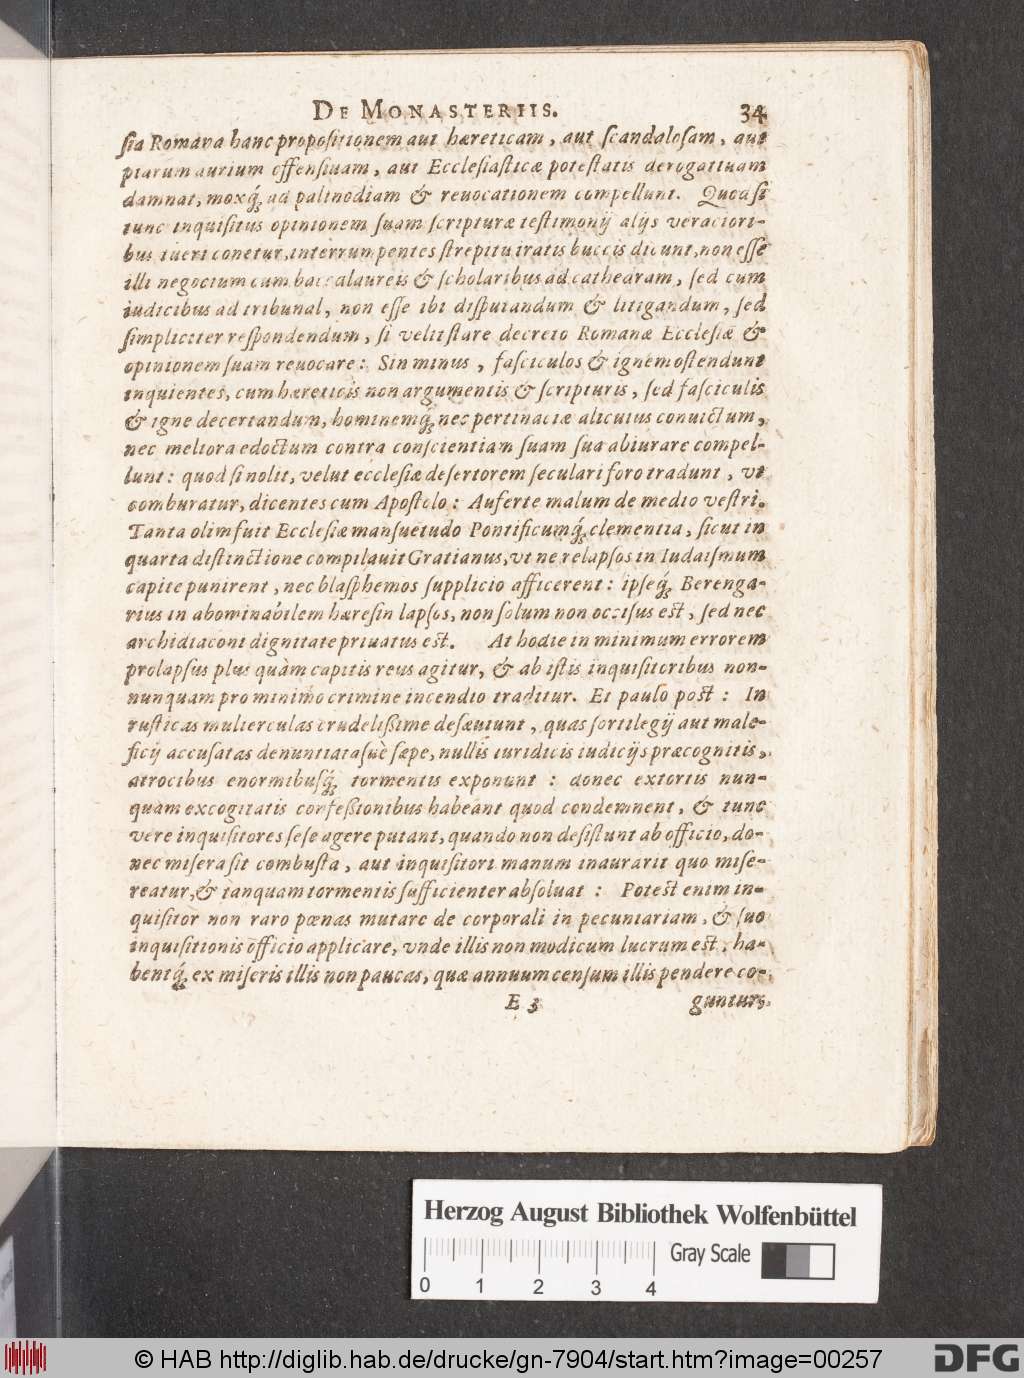 DE MONASTERIIS. 34
ſia Romana hanc propoſitionem aut hæreticam, aut ſcandaloſam, aut
piarum aurium offenſiuam, aut Eccleſiaſticæ poteſtatis derogatiuam
damnat, moxq́; ad palinodiam & reuocationem compellunt. Quod ſi
tunc inquiſitus opinionem ſuam ſcripturæ teſtimonij alijs veraciori-
bus tueri conetur, interrumpentes ſtrepitu iratis buccis dicunt, non eſſe
illi negocium cum baccalaureis & ſcholaribus ad cathearam, ſed cum
iudicibus ad tribunal, non eſſe ibi diſputandum & litigandum, ſed
ſimpliciter reſpondendum, ſi velit ſtare decreto Romanæ Eccleſiæ &
opinionem ſuam reuocare: Sin minus, faſciculos & ignem oſtendunt
inquientes, cum hæreticis non argumentis & ſcripturis, ſed faſciculis
& igne decertandum, hominemq́; nec pertinaciæ alicuius conuictum,
nec meliora edoctum contra conſcientiam ſuam ſua abiurare compel-
lunt: quod ſi nolit, velut eccleſiæ deſertorem ſeculari foro tradunt, vt
comburatur, dicentes cum Apoſtolo: Auferte malum de medio veſtri.
Tanta olim fuit Eccleſiæ manſuetudo Pontificumq́; clementia, ſicut in
quarta diſtinctione compilauit Gratianus, vt ne relapſos in Iudaiſmum
capite punirent, nec blaſphemos ſupplicio afficerent: ipſeq́; Berenga-
rius in abominabilem hæreſin lapſos, non ſolum non occiſus eſt, ſed nec
archidiaconi dignitate priuatus eſt. At hodie in minimum errorem
prolapſus plus quàm capitis reus agitur, & ab iſtis inquiſitoribus non-
nunquam pro minimo crimine incendio traditur. Et paulo poſt: In
ruſticas mulierculas crudelißime deſæuiunt, quas ſortilegij aut male-
ficij accuſatas denuntiataſuè ſæpe, nullis iuridicis iudicijs præcognitis,
atrocibus enormibuſq́; tormentis exponunt: donec extortis nun-
quàm excogitatis confeßionibus habeant quod condemnent, & tunc
vere inquiſitores ſeſe agere putant, quando non deſiſtunt ab officio, do-
nec miſera ſit combuſta, aut inquiſitori manum inaurarit quo miſe-
reatur, & tanquam tormentis ſufficienter abſoluat: Poteſt enim in-
quiſitor non raro pœnas mutare de corporali in pecuniariam, & ſuo
inquiſitionis officio applicare, vnde illis non modicum lucrum eſt, ha-
bentq́; ex miſeris illis non paucas, quæ annuum cenſum illis pendere co-
E 3 guntur,
Herzog August Bibliothek Wolfenbüttel
Gray Scale
0 1 2 3 4
© HAB http://diglib.hab.de/drucke/gn-7904/start.htm?image=00257
DFG